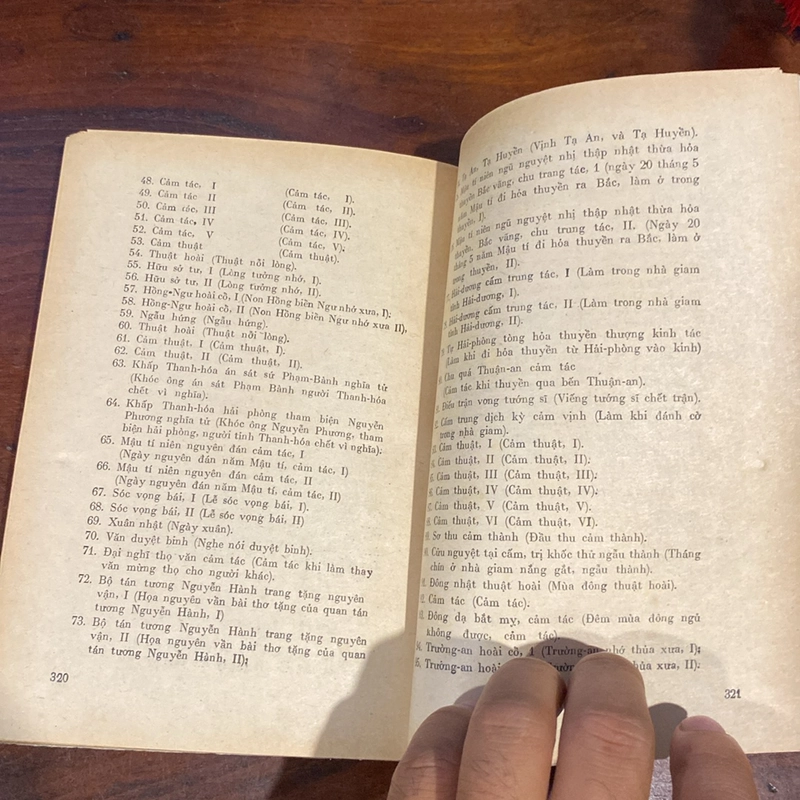 48. Cảm tác, I (Cảm tác, I).
49. Cảm tác II (Cảm tác, II).
50. Cảm tác, III (Cảm tác, III).
51. Cảm tác, IV (Cảm tác, IV).
52. Cảm tác, V (Cảm tác, V).
53. Cảm thuật (Cảm thuật).
54. Thuật hoài (Thuật nỗi lòng).
55. Hữu sở tư, I (Lòng tưởng nhớ, I).
56. Hữu sở tư, II (Lòng tưởng nhớ, II).
57. Hồng-Ngư hoài cổ, I (Non Hồng biển Ngư nhớ xưa, I).
58. Hồng-Ngư hoài cổ, II (Non Hồng biển Ngư nhớ xưa II).
59. Ngẫu hứng (Ngẫu hứng).
60. Thuật hoài (Thuật nỗi lòng).
61. Cảm thuật, I (Cảm thuật, I).
62. Cảm thuật, II (Cảm thuật, II).
63. Khấp Thanh-hóa án sát sứ Phạm-Bành nghĩa tử
(Khóc ông án sát Phạm Bành người Thanh-hóa
chết vì nghĩa).
64. Khấp Thanh-hóa hải phòng tham biện Nguyễn
Phương nghĩa tử (Khóc ông Nguyễn Phương, tham
biện hải phòng, người tỉnh Thanh-hóa chết vì nghĩa).
65. Mậu tí niên nguyên đán cảm tác, I
(Ngày nguyên đán năm Mậu tí, cảm tác, I)
66. Mậu tí niên nguyên đán cảm tác, II
(Ngày nguyên đán năm Mậu tí, cảm tác, II)
67. Sóc vọng bái, I (Lễ sóc vọng bái, I)
68. Sóc vọng bái, II (Lễ sóc vọng bái, II)
69. Xuân nhật (Ngày xuân).
70. Văn duyệt binh (Nghe nói duyệt binh).
71. Đại nghĩ thọ văn cảm tác (Cảm tác khi làm thay
văn mừng thọ cho người khác).
72. Bộ tán tương Nguyễn Hành trang tặng nguyên
vận, I (Họa nguyên vần bài thơ tặng của quan tán
tương Nguyễn Hành, I)
73. Bộ tán tương Nguyễn Hành trang tặng nguyên
vận, II (Họa nguyên vần bài thơ tặng của quan
tán tương Nguyễn Hành, II);
320
Tạ An, Tạ Huyền (Vịnh Tạ An, và Tạ Huyền).
tí niên ngũ nguyệt nhị thập nhật thừa hỏa
thuyền Bắc vãng, chu trung tác, I (ngày 20 tháng 5
năm Mậu tí đi hỏa thuyền ra Bắc, làm ở trong
thuyền, I).
Mậu tí niên ngũ nguyệt nhị thập nhật thừa hỏa
thuyền, Bắc vãng, chu trung tác, II. (Ngày 20
tháng 5 năm Mậu tí đi hỏa thuyền ra Bắc, làm ở
trong thuyền, II).
Hải-dương cấm trung tác, I (Làm trong nhà giam
tỉnh Hải-dương, I).
Hải-dương cấm trung tác, II (Làm trong nhà giam
tỉnh Hải-dương, II).
Tự Hải-phòng tòng hỏa thuyền thượng kinh tác
(Làm khi đi hỏa thuyền từ Hải-phòng vào kinh)
Chu quá Thuận-an cảm tác
(Cảm tác khi thuyền qua bến Thuận-an).
Điếu trận vong tướng sĩ (Viếng tướng sĩ chết trận).
Cấm trung dịch kỳ cảm vịnh (Làm khi đánh cờ
trong nhà giam).
Cảm thuật, I (Cảm thuật, I).
Cảm thuật, II (Cảm thuật, II).
Cảm thuật, III (Cảm thuật, III).
Cảm thuật, IV (Cảm thuật, IV).
Cảm thuật, V (Cảm thuật, V).
Cảm thuật, VI (Cảm thuật, VI).
Sơ thu cảm thành (Đầu thu cảm thành).
Cửu nguyệt tại cấm, trị khốc thử ngẫu thành (Tháng
chín ở nhà giam nắng gắt, ngẫu thành).
Đông nhật thuật hoài (Mùa đông thuật hoài).
Cảm tác (Cảm tác).
Đông dạ bất mỵ, cảm tác (Đêm mùa đông ngủ
không được, cảm tác).
94. Trường-an hoài cổ, I (Trường-an nhớ thủa xưa, I);
95. Trường-an hoài thủa xưa, II).
321